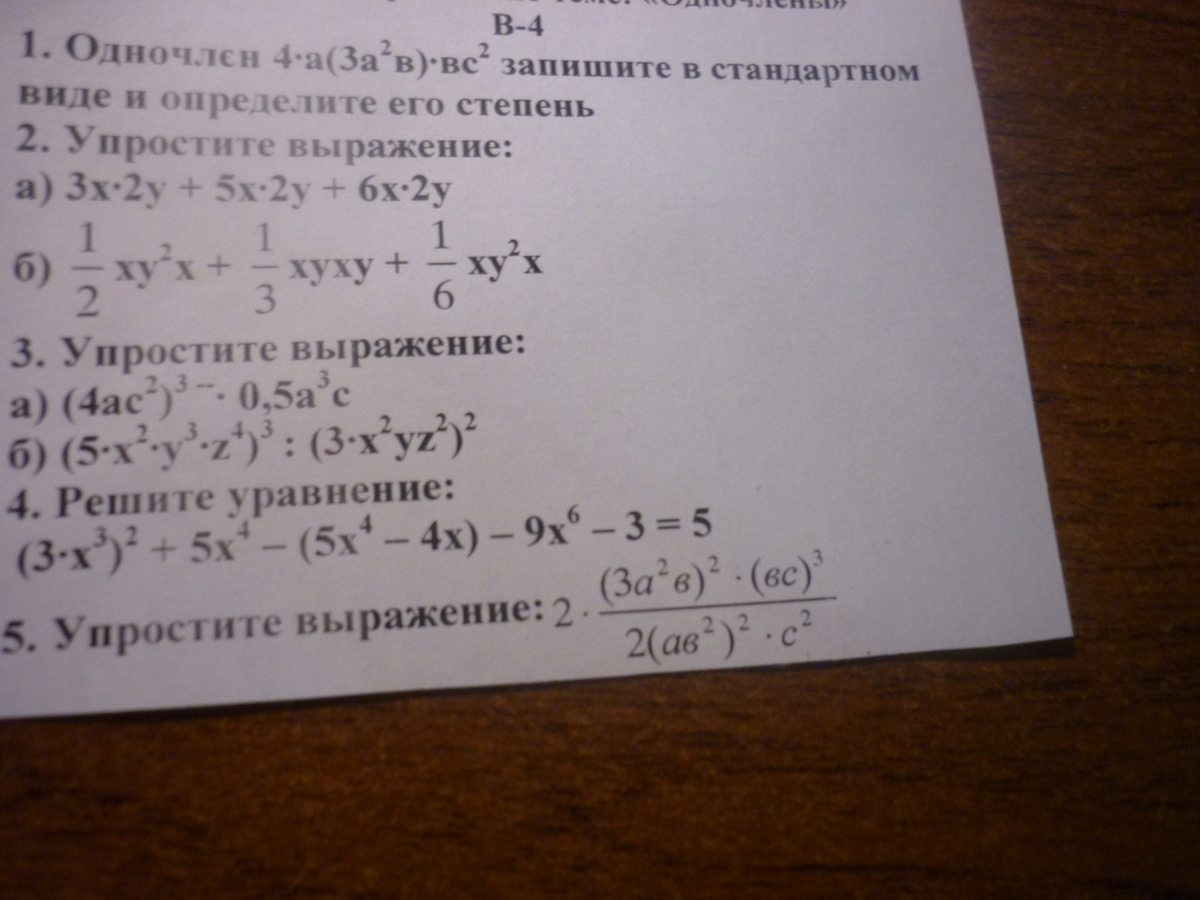 «Одночлены»
В-4
1. Одночлєн 4·а(3а²в)·вс² запишите в стандартном
виде и определите его степень
2. Упростите выражение:
а) 3х·2у + 5х·2у + 6х·2у
б) 1/2 ху²х + 1/3 хуху + 1/6 ху²х
3. Упростите выражение:
а) (4ас²)³ ⁻· 0,5а³с
б) (5·х²·у³·z⁴)³ : (3·х²уz²)²
4. Решите уравнение:
(3·х³)² + 5х⁴ – (5х⁴ – 4х) – 9х⁶ – 3 = 5
5. Упростите выражение: 2 · (3а²в)² · (вс)³ / 2(ав²)² · с²